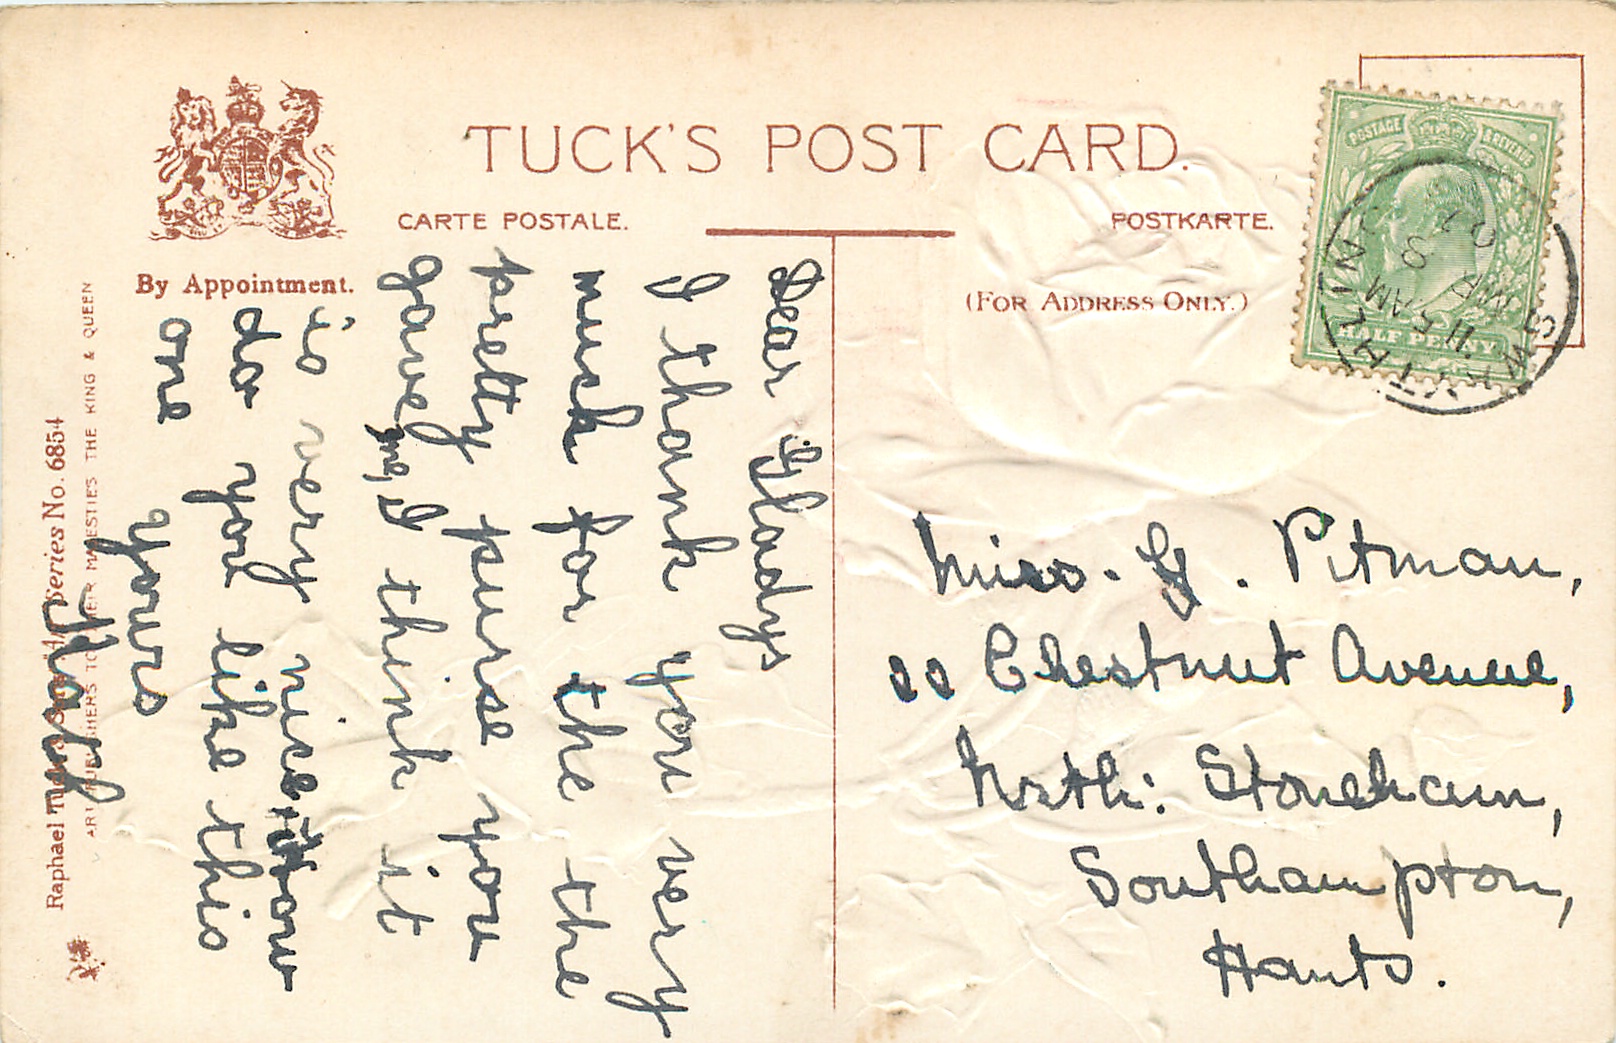 TUCK'S POST CARD.
CARTE POSTALE.
POSTKARTE.
By Appointment.
(FOR ADDRESS ONLY.)
POSTAGE & REVENUE
HALF PENNY
11 5 AM
MR 3
07
Dear Gladys
I thank you very
much for the the
pretty purse you
gave me, I think it
is very nice, how
do you like this
one
yours
Miss. G. Pitman,
Chestnut Avenue,
North: Stoneham,
Southampton,
Hants.
Raphael Tuck & Sons' Series No. 6854
ART PUBLISHERS TO THEIR MAJESTIES THE KING & QUEEN